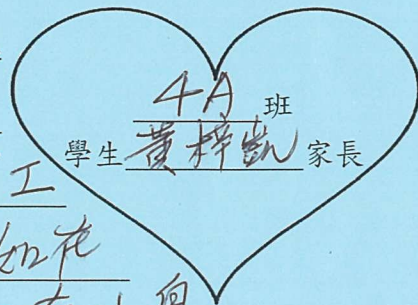 4A 班
學生 黃梓凱 家長
工
如花